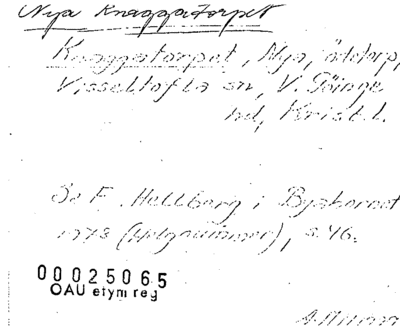 Nya Knaggatorpet
Knaggatorpet, Nya, ödetorp,
Visseltofta sn, V. Göinge
hd, Krist. l.
Se F. Hellberg i Byahornet
1978 (Helgonumer), s. 46.
00025065
OAU etym reg